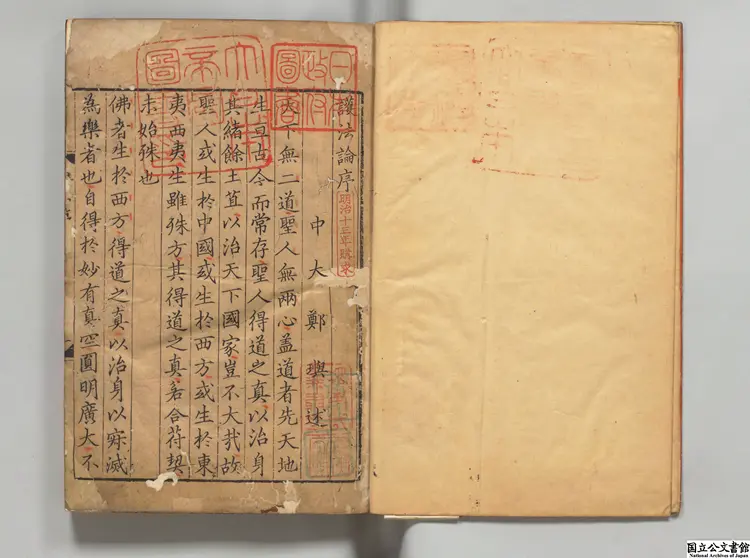 日本政府圖書
大日本帝國圖書印
護法論序
明治十三年購求
中大鄭璵述
天下無二道聖人無兩心盖道者先天地
生亘古今而常存聖人得道之真以治身
其緒餘土苴以治天下國家豈不大哉故
聖人或生於中國或生於西方或生於東
夷西夷生雖殊方其得道之真若合符契
未始殊也
佛者生於西方得道之真以治身以寂滅
為樂者也自得於妙有真空圓明廣大不
国立公文書館
National Archives of Japan